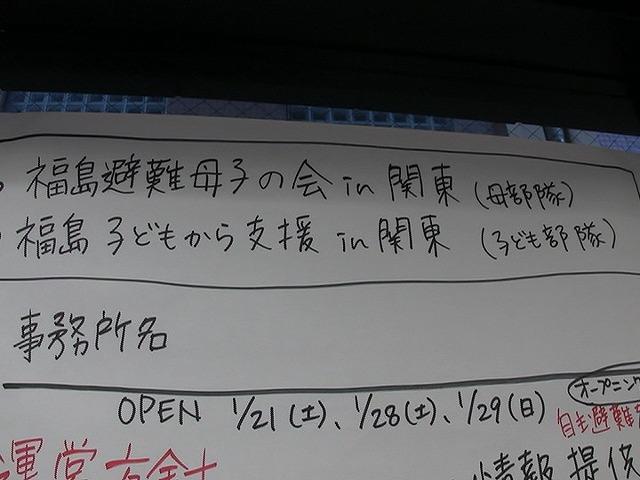 福島避難母子の会 in 関東 (母部隊)
福島 子どもから支援 in 関東 (子ども部隊)
事務所名
オープニング
OPEN 1/21(土)、1/28(土)、1/29(日)
自主避難
運営方針
情報提供